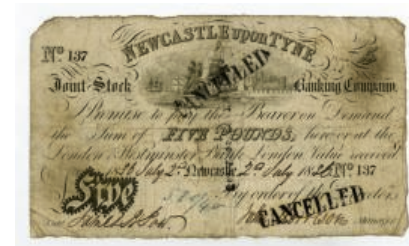 NEWCASTLE upon TYNE
Nº 137
CANCELLED
Joint Stock Banking Company.
I Promise to pay the Bearer on Demand
the Sum of FIVE POUNDS, here or at the
London & Westminster Bank London Value received
July 2d Newcastle 2d July Nº 137
Five
By order of the Directors
CANCELLED